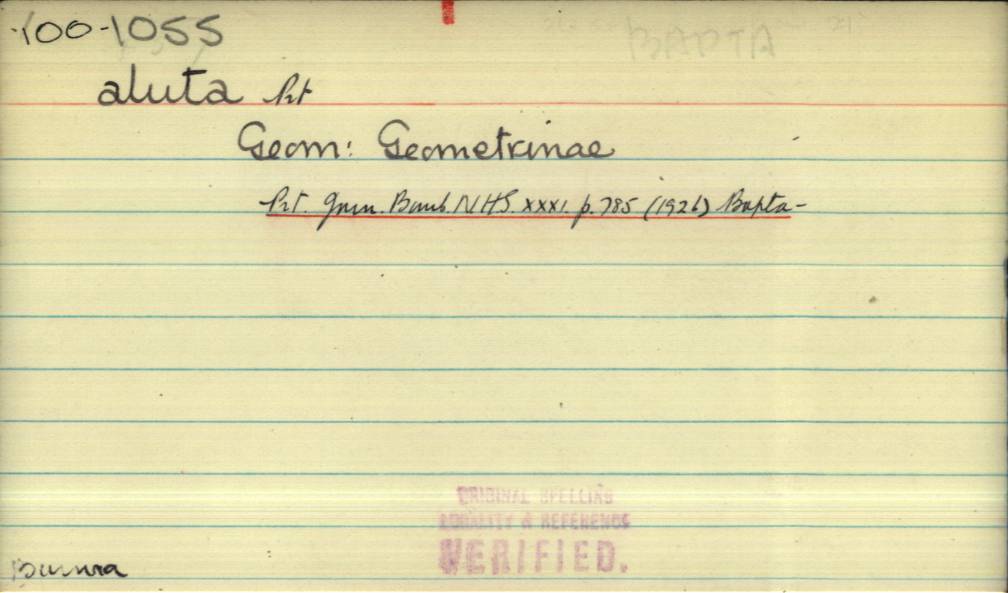 100-1055
BAPTA
aluta Prt
Geom: Geometrinae
Prt. Journ. Bomb. NHS. xxxi. p. 785 (1926) Bapta-
ORIGINAL SPELLING
LOCALITY & REFERENCE
VERIFIED.
Burma